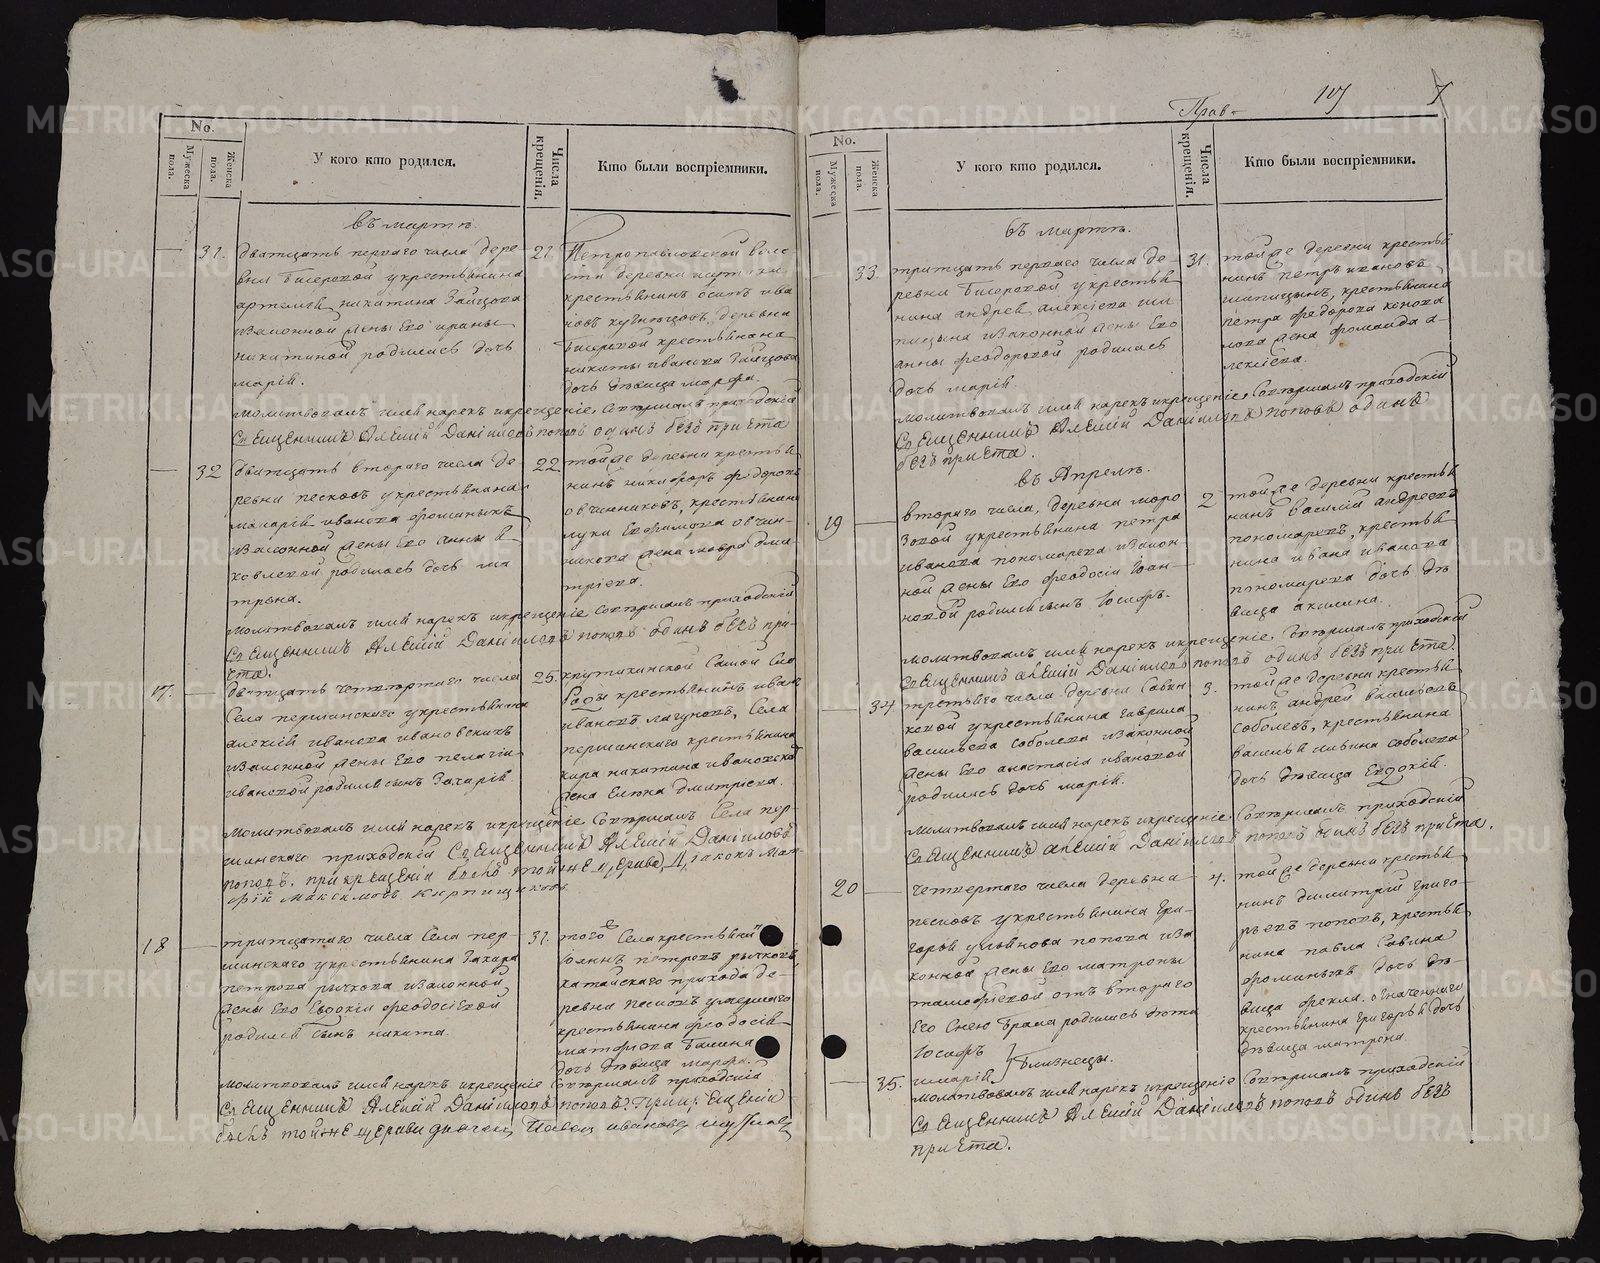 Прав-
107
7
No.
Мужеска пола.
Женска пола.
У кого кто родился.
Числа крещенія.
Кто были воспріемники.
въ мартѣ.
31.
дватцать перваго числа дере-
вни Бисерской у крестьянина
никитина Зайцова
законной жены Его ирины
никитиной родилась дочь
марія.
21.
Петропавловской воло-
сти деревни
крестьянинъ осипъ ива
новъ кузнецовъ, деревни
Бисерской крестьянина
никиты иванова Зайцова
дочь дѣвица марфа.
молитвовалъ имя нарекъ и крещеніе совершалъ приходскій
Священникъ Алексій Даніиловъ поповъ одинъ безъ причта
32
дватцать втораго числа де-
ревни песковъ у крестьянина
иванова
законной жены Его анны я
ковлевой родилась дочь ма
трона.
22.
тойже деревни крестья
нинъ никифоръ федоровъ
овчинниковъ, крестьянина
луки Ефимова овчин-
никова жена мавра дми-
тріева.
молитвовалъ имя нарекъ и крещеніе совершалъ приходскій
Священникъ Алексій Даніиловъ поповъ одинъ безъ при-
чта.
17.
дватцать четвертаго числа
Села першинскаго у крестьянина
алексія иванова ивановскихъ
законной жены Его пелагіи
ивановой родился сынъ Захарій
25.
Самой Сло
боды крестьянинъ иванъ
ивановъ лагуновъ, Села
першинскаго крестьянина
кира никитина ивановской
жена Елена дмитріева.
молитвовалъ имя нарекъ и крещеніе совершалъ Села пер-
шинскаго приходскій Священникъ Алексій Даніиловъ
поповъ. при крещеніи былъ тойже церкви Діаконъ Мат-
фій Максимовъ Кирпищиковъ.
18
тритцатаго числа Села пер-
шинскаго у крестьянина Захара
петрова рычкова законной
жены Его Евдокіи феодосіевой
родился Сынъ никита.
31.
того Села крестьянинъ
петровъ рычковъ,
катайскаго прихода де-
ревни песковъ умершаго
крестьянина феодосія
дочь дѣвица марфа.
молитвовалъ имя нарекъ и крещеніе совершалъ приходскій
Священникъ Алексій Даніиловъ поповъ. при крещеніи
былъ тойже церкви дьячекъ иванов
No.
Мужеска пола.
Женска пола.
У кого кто родился.
Числа крещенія.
Кто были воспріемники.
въ мартѣ.
33.
тритцать перваго числа де-
ревни Бисерской у крестья
нина андрея алексіева ши
пицына законной жены Его
анны феодоровой родилась
дочь марія.
31.
тойже деревни крестья
нинъ петръ ивановъ
шипицынъ, крестьянина
петра федорова коново
лова жена фомаида а-
лексіева.
молитвовалъ имя нарекъ и крещеніе совершалъ приходскій
Священникъ Алексій Даніиловъ поповъ одинъ
безъ причта.
въ Апрелѣ.
19
втораго числа, деревни моро
зовой у крестьянина петра
иванова пономарева закон
ной жены Его феодосіи Іоан-
новой родился сынъ Іосифъ.
2
тойже деревни крестья
нинъ василій андреевъ
пономаревъ, крестья
нина ивана иванова
пономарева дочь дѣ
вица акилина.
молитвовалъ имя нарекъ и крещеніе совершалъ приходскій
Священникъ алексій Даніиловъ поповъ одинъ безъ причта.
34
третьяго числа деревни Савин
ковой у крестьянина гаврила
васильева соболева законной
жены Его анастасіи ивановой
родилась дочь марія.
3.
тойже деревни крестья
нинъ андрей васильевъ
соболевъ, крестьянина
василья савина соболева
дочь дѣвица Евдокія.
молитвовалъ имя нарекъ и крещеніе совершалъ приходскій
Священникъ алексій Даніиловъ поповъ одинъ безъ причта.
20
четвертаго числа деревни
песковъ у крестьянина гри-
горья ульянова попова зако
нной жены Его матроны
тимофіевой отъ втораго
Его Снею брака родились дѣти
Іосифъ
и марія } близнецы.
35.
4.
тойже деревни крестья
нинъ димитрій григо-
рьевъ поповъ, крестья
нина павла савина
фоминыхъ дочь дѣ-
вица фекла. означеннаго
крестьянина григорья дочь
дѣвица матрона.
молитвовалъ имя нарекъ и крещеніе совершалъ приходскій
Священникъ Алексій Даніиловъ поповъ одинъ безъ
причта.
METRIKI.GASO-URAL.RU